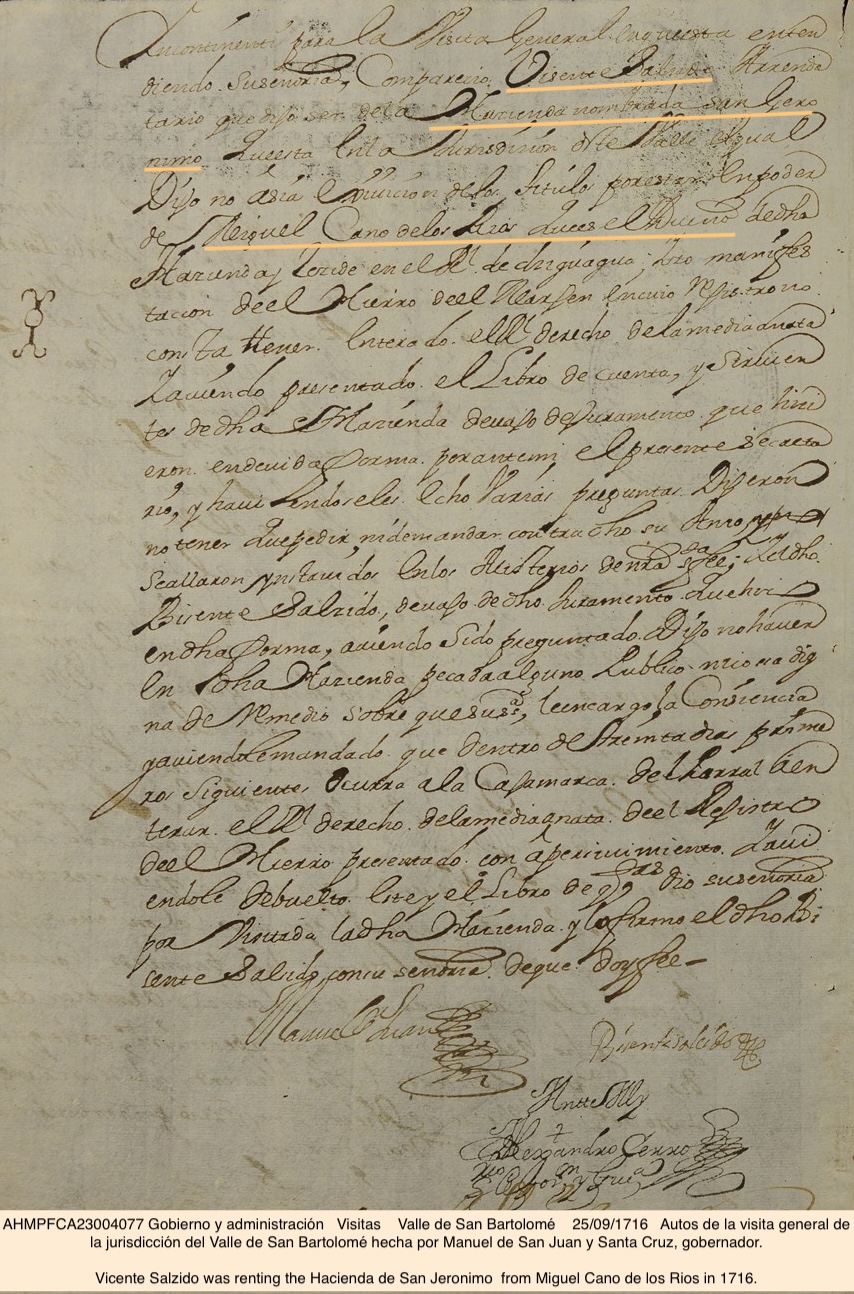 Incontinenti para la Visita General enquesta enten
diendo. Suseñoria, Comparecio Visente Salzido Arrenda
tario que dijo ser dela Hazienda nombrada san Gero
nimo questa enla Jurisdizion deste Valle elqual
Dijo no asia exsivicion delos titulos por estar en poder
de Miguel Cano delos Rios ques el Dueño dedha
Hazienda y Reside en el Rl de chiguagua; hizo manifes
tacion deel Hierro deel Herrar en cuio Rexistro no
consta thener. Enterado. el Rl derecho delamediaanata
Zaviendo presentado. el Libro de cuenta, y Sirvien
tes dedha Hazienda devajo de Juramento que hizi
eron endevida Forma. por antemi el presente secreta
rio, y haviendoseles. Echo Varias preguntas. Dijeron
no tener que pedir, ni demandar contra dho su Amo,
se allaron ynstruidos enlos Misterios de nra Sta fee; Zeldho.
Bisente Salzido, devajo dedho Juramento. que hizo
en dha Forma, aviendo Sido preguntado. Dijo no haver
En dha Hazienda pecado alguno Publico. ni cosa dig
na de Remedio sobre que susa, le encargo la Consiencia
yaviendole mandado. que dentro de treinta dias prime
ros Siguientes Ocurra ala Cajamarca. del Parral a en
terar. el Rl derecho. delamediaanata. deel Rejistro
deel Hierro presentado. con apersivimiento. Zavi
endole debuelto. este y el Libro de qtas dio suseñoria
por Visitada ladha Hazienda y lo firmo el dho Bi
sente Salzido, con su señoria. deque doy fee—
Manuel Sn Juan
Bisente salcido
Antte My
Alexandro Cerro
AHMPFCA23004077 Gobierno y administración Visitas Valle de San Bartolomé 25/09/1716 Autos de la visita general de
la jurisdicción del Valle de San Bartolomé hecha por Manuel de San Juan y Santa Cruz, gobernador.
Vicente Salzido was renting the Hacienda de San Jeronimo from Miguel Cano de los Rios in 1716.